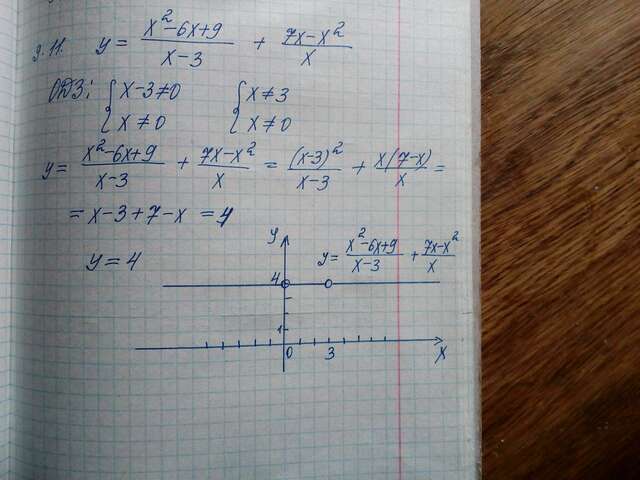 9.11. y = (x²-6x+9)/(x-3) + (7x-x²)/x
ОДЗ: { x-3≠0 { x≠3
x≠0 x≠0
y= (x²-6x+9)/(x-3) + (7x-x²)/x = (x-3)²/(x-3) + x(7-x)/x =
= x-3+7-x = 4
y = 4
y
y= (x²-6x+9)/(x-3) + (7x-x²)/x
4
1
0 3 x